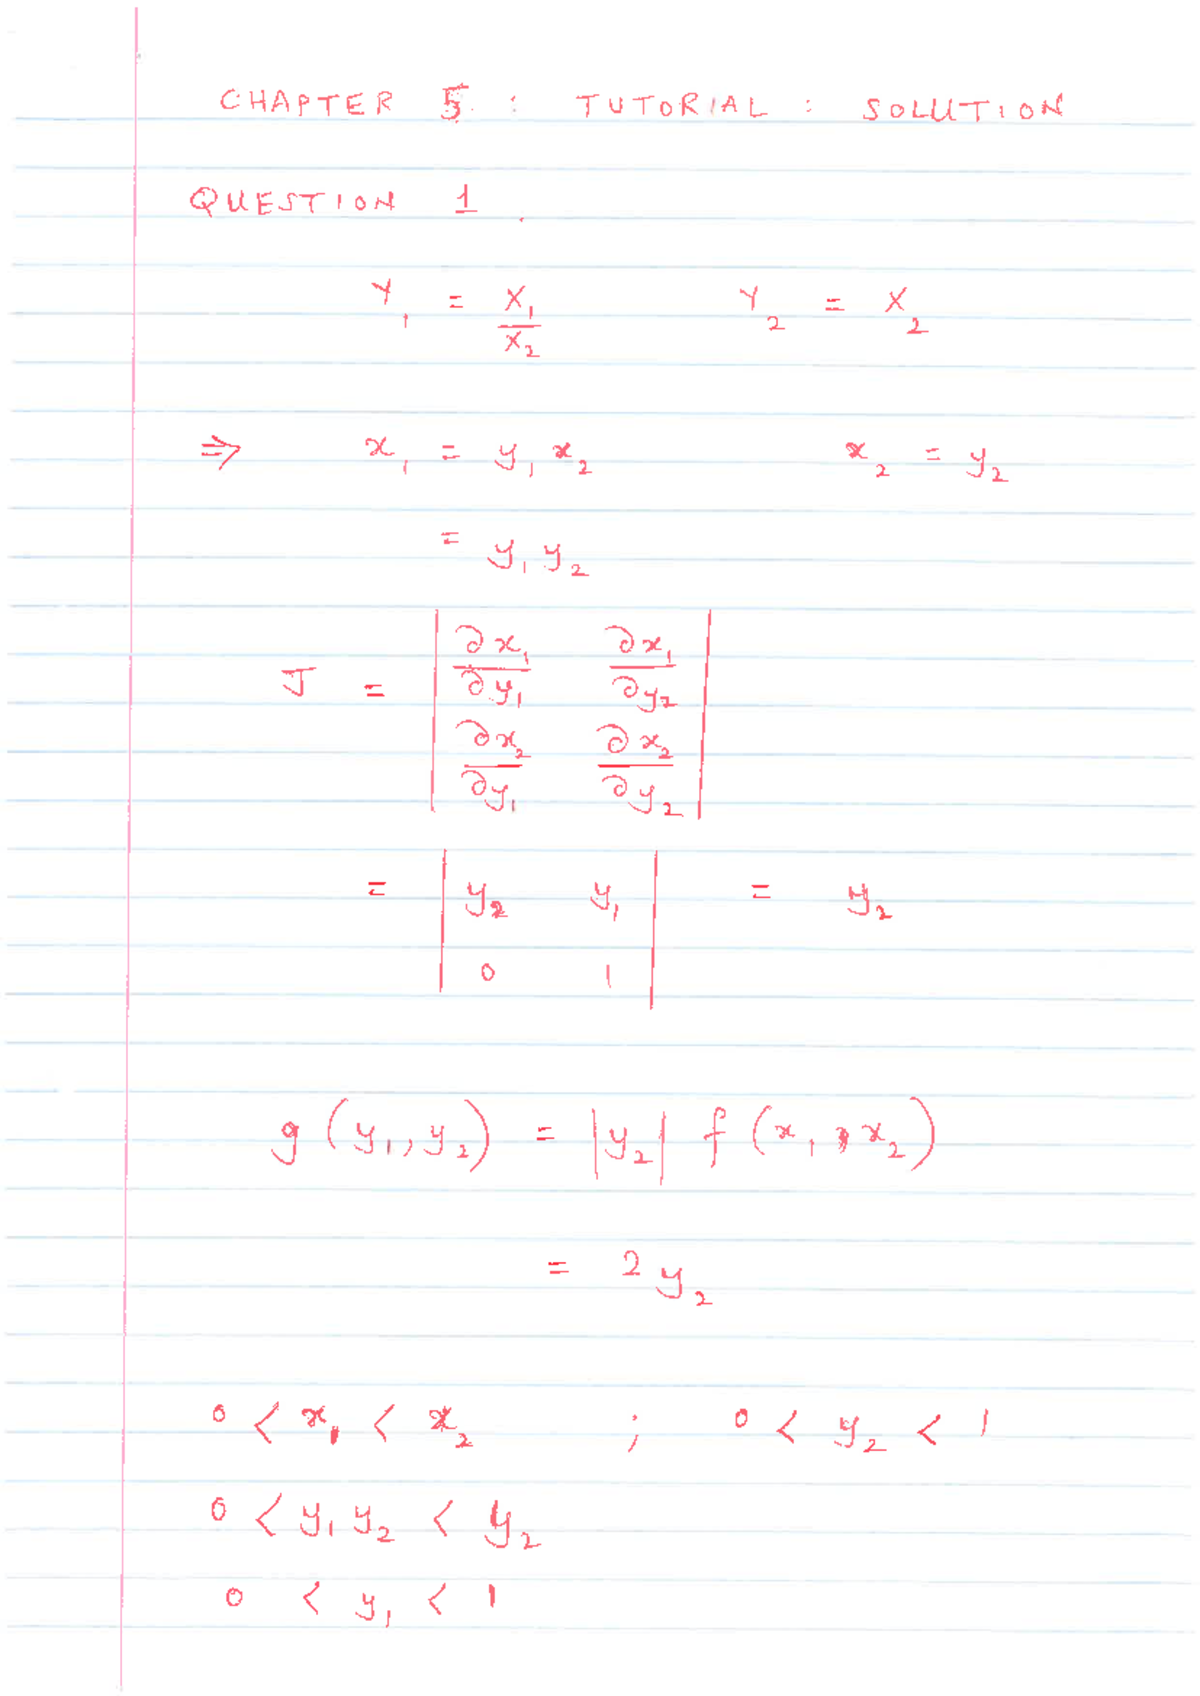 CHAPTER 5 : TUTORIAL : SOLUTION
QUESTION 1.
Y₁ = X₁/X₂ Y₂ = X₂
⇒ x₁ = y₁ x₂ x₂ = y₂
= y₁ y₂
J = | ∂x₁/∂y₁ ∂x₁/∂y₂ |
| ∂x₂/∂y₁ ∂x₂/∂y₂ |
= | y₂ y₁ | = y₂
| 0 1 |
g (y₁, y₂) = |y₂| f (x₁, x₂)
= 2 y₂
0 < x₁ < x₂ ; 0 < y₂ < 1
0 < y₁ y₂ < y₂
0 < y₁ < 1